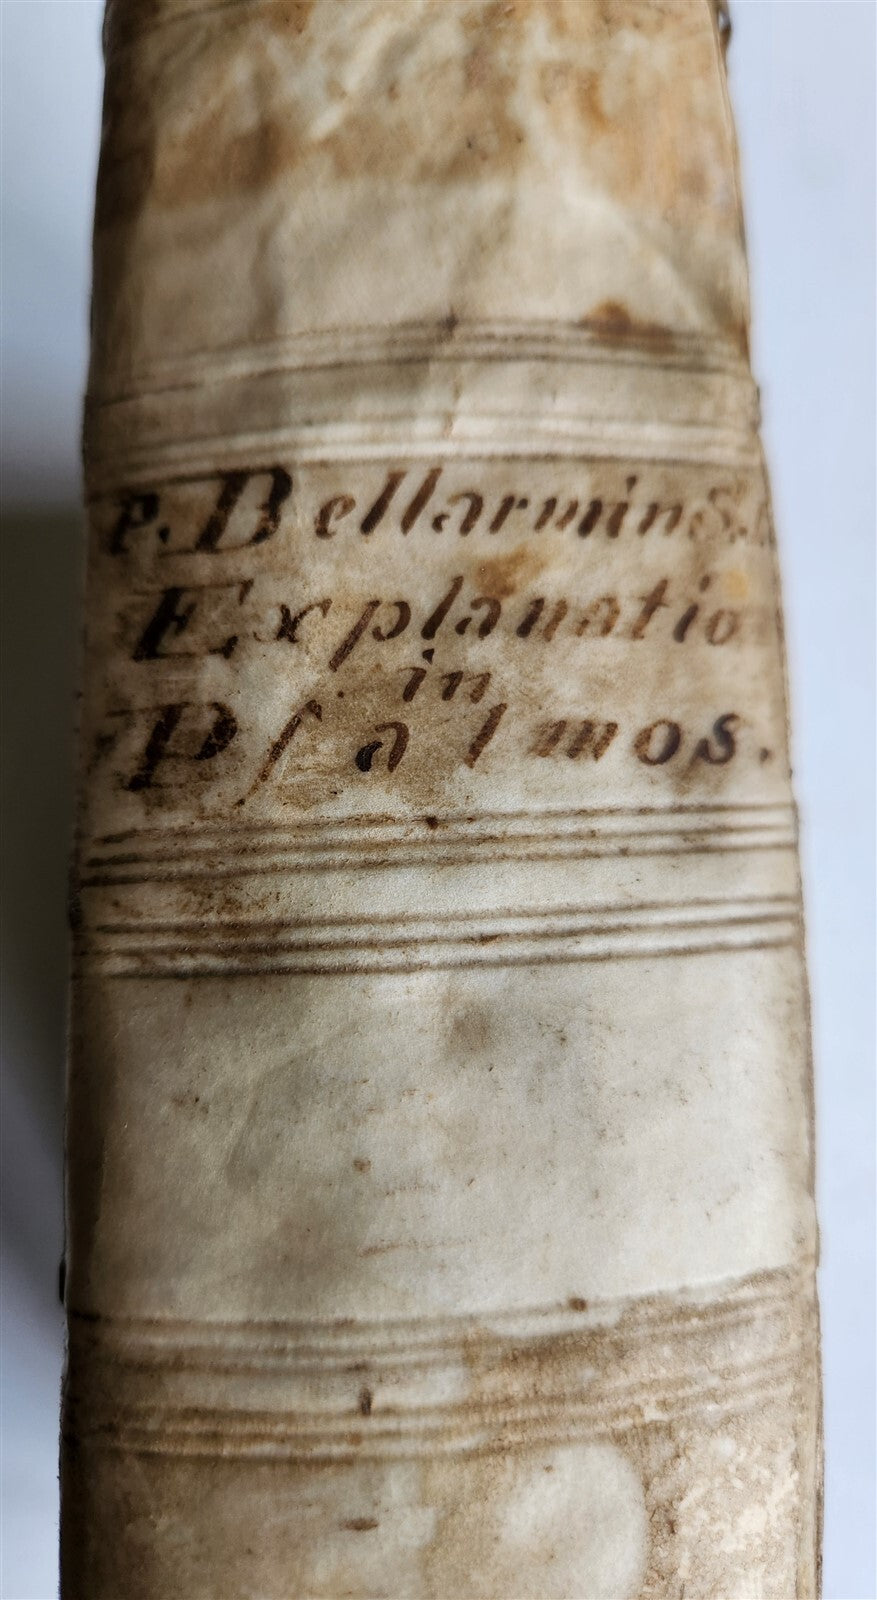 P. Bellarmin S.
Explanatio
in
Pſalmos.